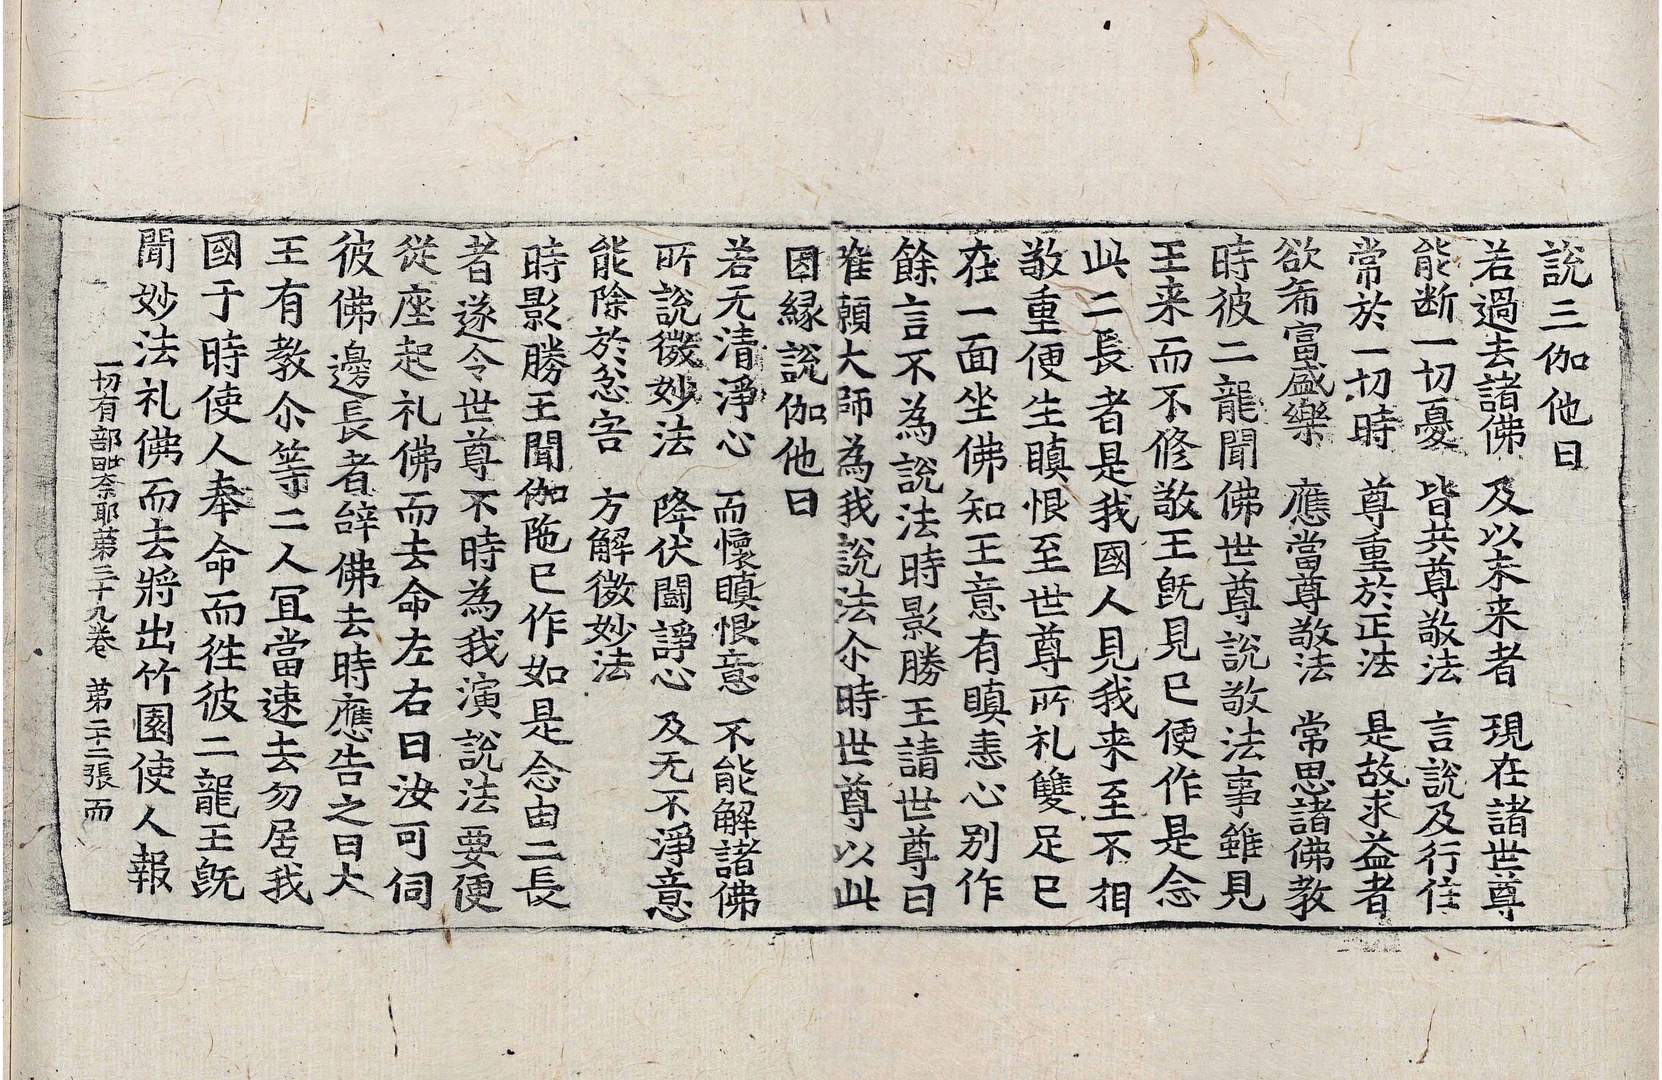 說三伽他曰
若過去諸佛　及以未来者　現在諸世尊
能断一切憂　皆共尊敬法　言說及行住
常於一切時　尊重於正法　是故求益者
欲希富盛樂　應當尊敬法　常思諸佛教
時彼二龍聞佛世尊說敬法事雖見
王来而不修敬王既見已便作是念
此二長者是我國人見我来至不相
敬重便生瞋恨至世尊所礼雙足已
在一面坐佛知王意有瞋恚心別作
餘言不為說法時影勝王請世尊曰
唯願大師為我說法尒時世尊以此
因縁說伽他曰
若无清淨心　而懷瞋恨意　不能解諸佛
所說微妙法　降伏鬪諍心　及无不淨意
能除於忿害　方解微妙法
時影勝王聞伽陁已作如是念由二長
者遂令世尊不時為我演說法要便
從座起礼佛而去命左右曰汝可伺
彼佛邊長者辝佛去時應告之曰大
王有教尒等二人冝當速去勿居我
國于時使人奉命而徃彼二龍王既
聞妙法礼佛而去將出竹園使人報
一切有部毗奈耶第三十九卷　第二十二張　而